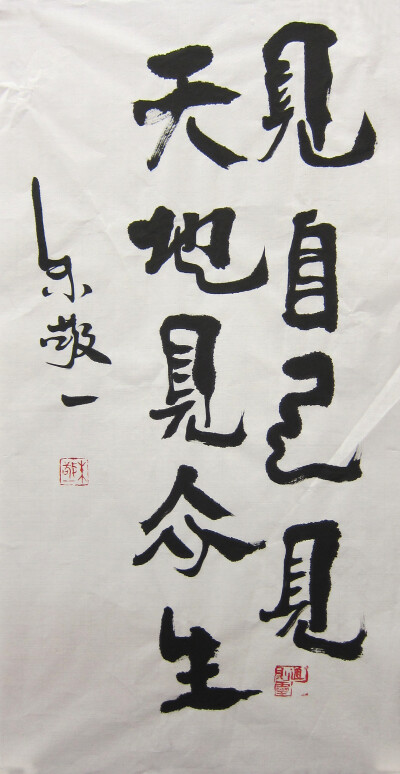 見自己見
天地見众生
朱敬一